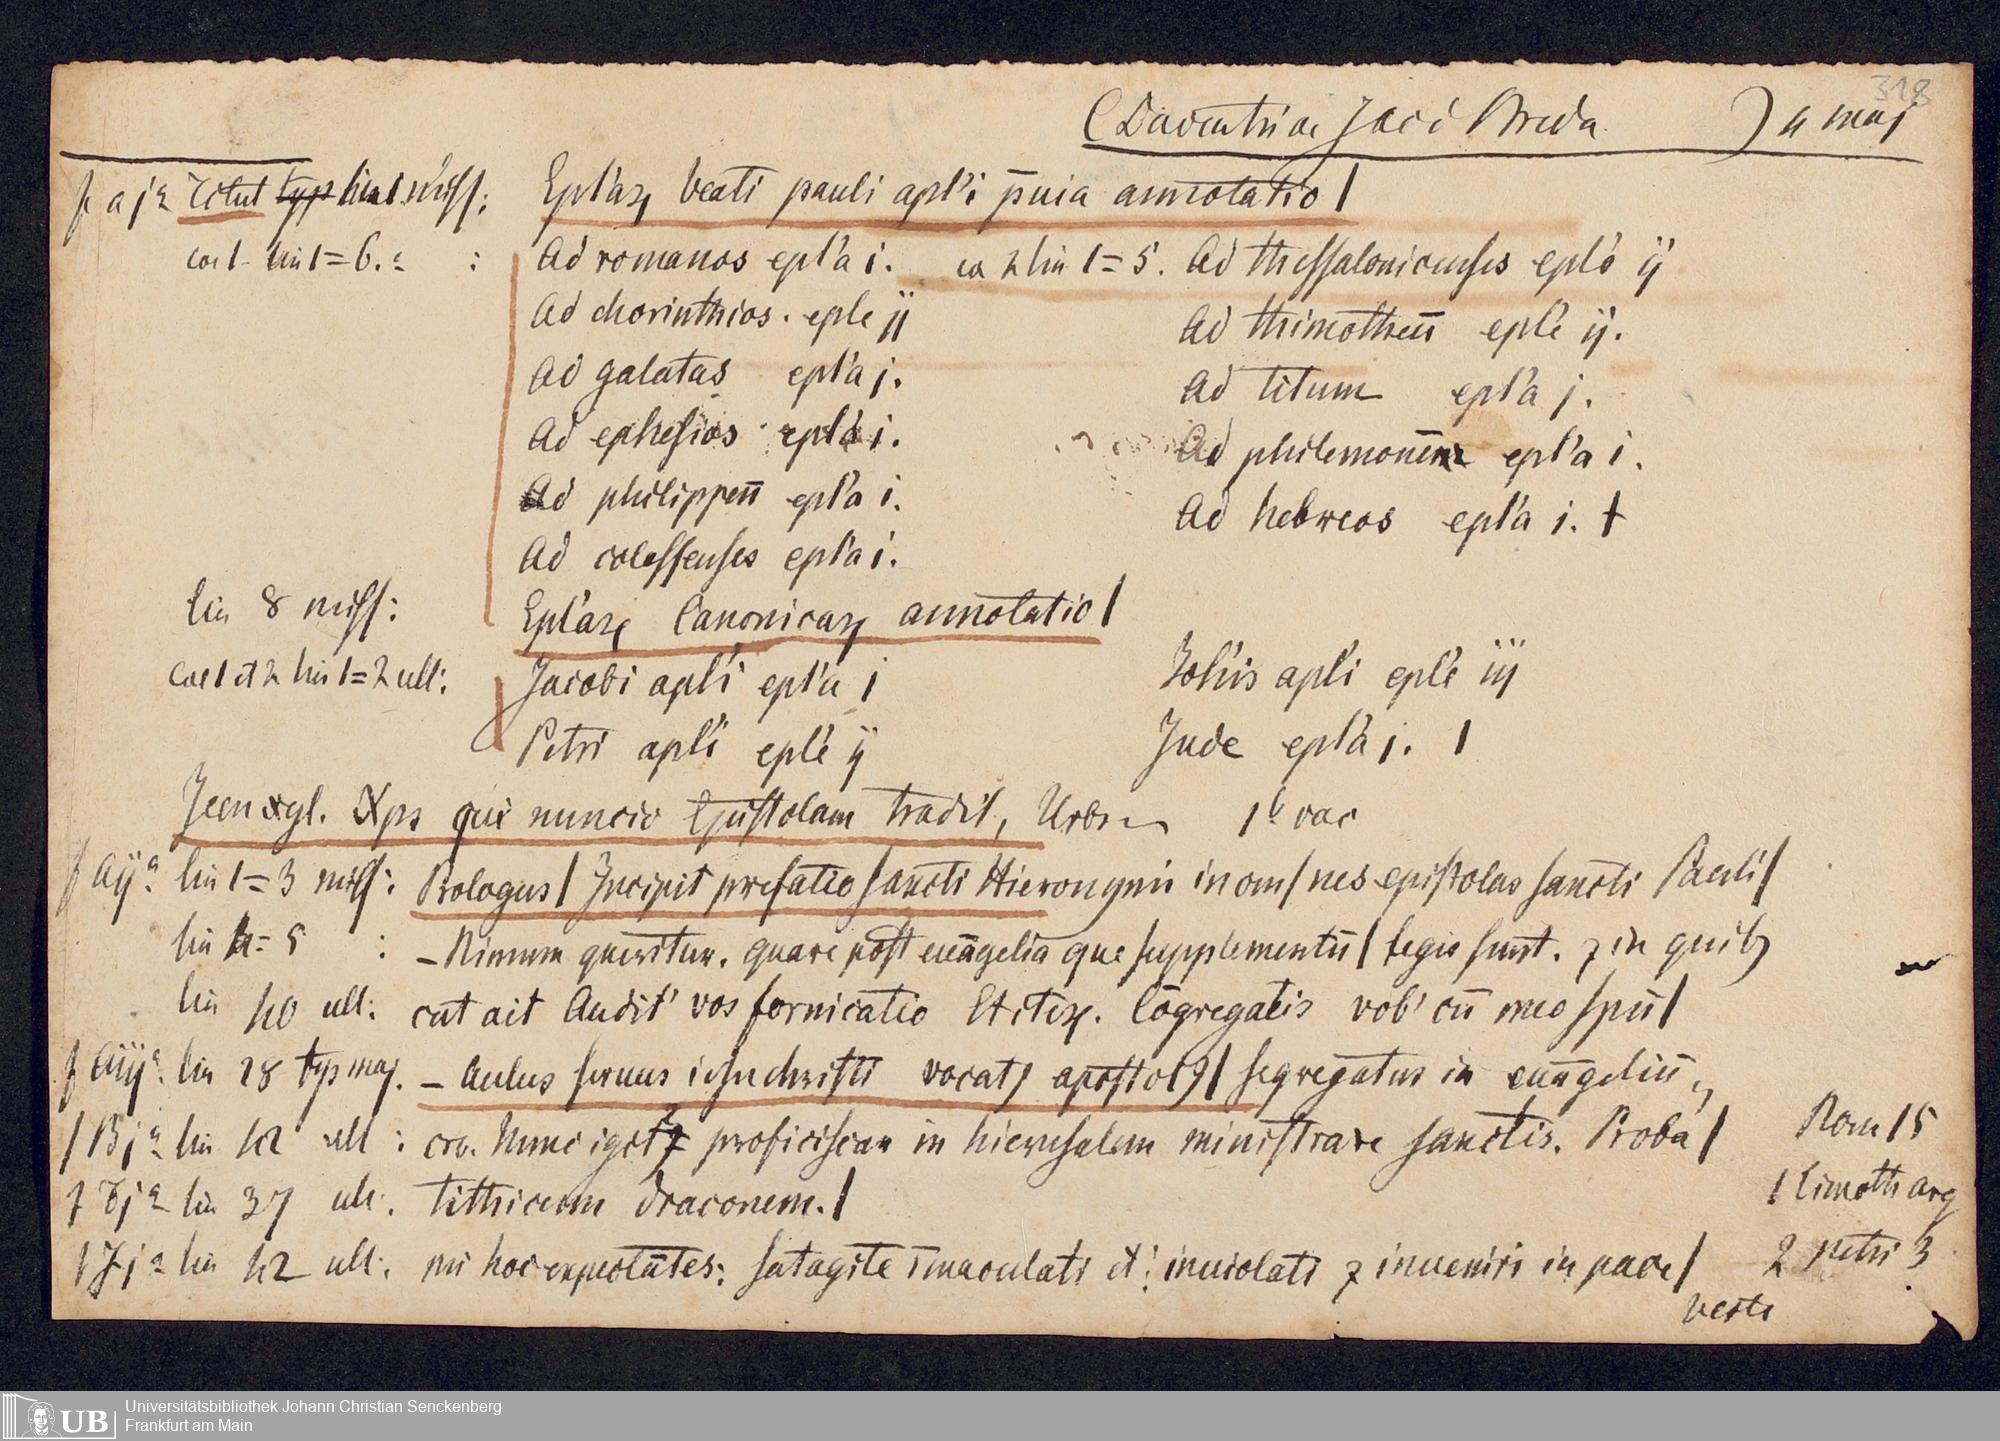 318
(Daventriae Jaci Breda ) 4 maj
f a j a Titul typ lin 1 miss: Epl'aꝝ beati pauli apl'i p̄uia annotatio |
col 1 lin 1=6. : Ad romanos epl'a i. co 2 lin 1=5. Ad thessalonicenses eple ij
Ad chorinthios. eple ij Ad thimotheū eple ij.
Ad galatas epl'a j. Ad titum epl'a j.
Ad ephesios epl'a i. Ad philemonem epl'a i.
Ad philippen̄ epl'a i. Ad hebreos epl'a i. |
Ad colossenses epl'a i.
lin 8 miss: Epl'aꝝ Canonicaꝝ annotatio |
col 1 et 2 lin 1=2 ult: Jacobi apl'i epl'a i Joh'is apl'i epl'e iij
Petri apl'i epl'e ij Jude epl'a j. |
xyl. Xps qui nuncio Epistolam tradit, 1b vac
f aij a. lin 1=3 miss: Prologus | Incipit prefatio sancti Hieronymi in om | nes epistolas sancti Pauli |
lin 4=5 : –Rimum queritur. quare post euāgelia que supplementū | legis sunt. ⁊ in quibꝫ
lin 40 ult: cat ait Audit' vos fornicatio Et iteꝝ. Cōgregatis vob' cū meo spū |
f aiij a. lin 28 typ maj. – Aulus seruus iesu christi vocatꝰ apostolꝰ | segregatus in euāgeliū
f B j a lin 42 ult : ero. Nunc igitꝛ proficiscar in hierusalem ministrare sanctis. Proba | Rom 15
f j a lin 37 ult: tithicum draconem. | 1 timoth arg
f j a lin 42 ult: mi hoc expectātes: satagite īmaculati et inuiolati ⁊ inueniri in pace | 2 petri 3.
Universitätsbibliothek Johann Christian Senckenberg
Frankfurt am Main
UB